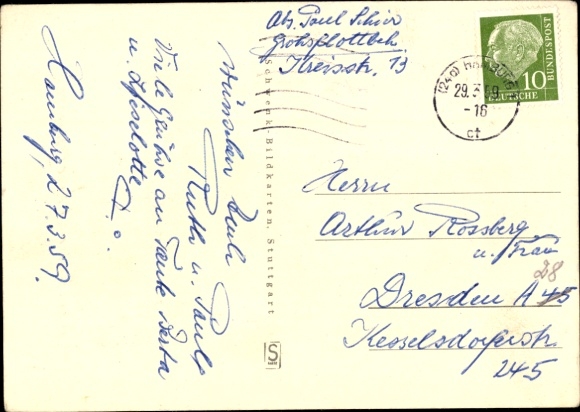 Hamburg, 27.3.59.
wünschen Euch
Ruth u. Paul
Viele Grüße an Tante Berta
u. Lieselotte
Abs. Paul
Großflottbek
Kreisstr. 13
Schwenk-Bildkarten, Stuttgart
(24a) HAMBURG
29. 3. 59
-16
ct
10
DEUTSCHE
BUNDESPOST
Herrn
Arthur Rossberg
u. Frau
28
Dresden A 45
Kesselsdorferstr.
245